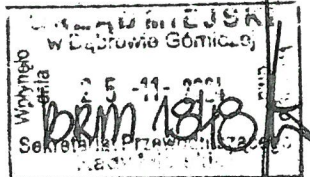 URZĄD MIEJSKI
w Dąbrowie Górniczej
Wpłynęło
dnia
25 -11-
BRM 1848
Sekretariat Przewodniczącego